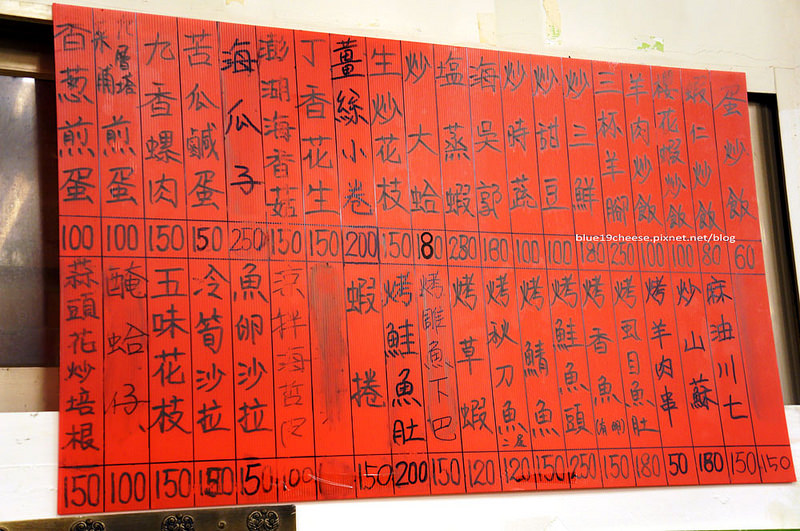 蛋炒飯 60
蝦仁炒飯 80
櫻花蝦炒飯 100
羊肉炒飯 100
三杯羊腳 250
炒三鮮 180
炒甜豆 100
炒時蔬 100
海吳郭 180
塩蒸蝦
炒大蛤 180
生炒花枝 150
薑絲小卷 200
丁香花生 150
澎湖海香菇 150
海瓜子 250
苦瓜鹹蛋 150
九香螺肉 150
九層塔菜脯煎蛋 100
百葱煎蛋 100
150
麻油川七 150
炒山蘇 180
烤羊肉串 50
烤虱目魚肚 180
烤香魚(有卵) 150
烤鮭魚頭 250
烤鯖魚 150
烤秋刀魚二尾 120
烤草蝦 120
烤雕魚下巴 150
烤鮭魚肚 200
蝦捲 150
涼拌海哲皮 100
魚卵沙拉 150
冷筍沙拉 150
五味花枝 150
醃蛤仔 100
蒜頭花炒培根 150
blue19cheese.pixnet.net/blog